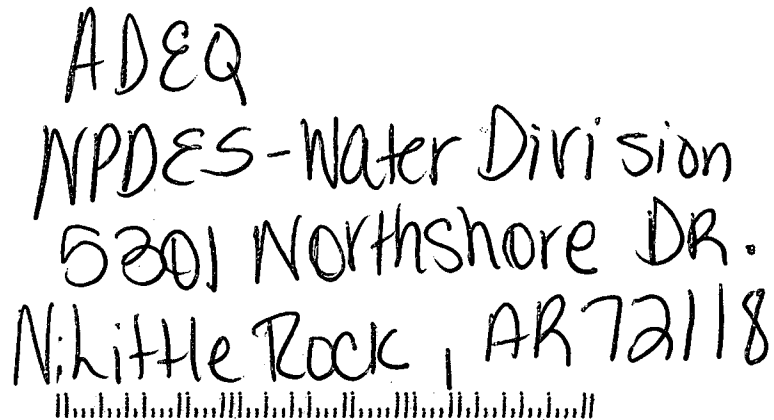 ADEQ
NPDES-Water Division
5301 Northshore DR.
N. Little Rock, AR 72118